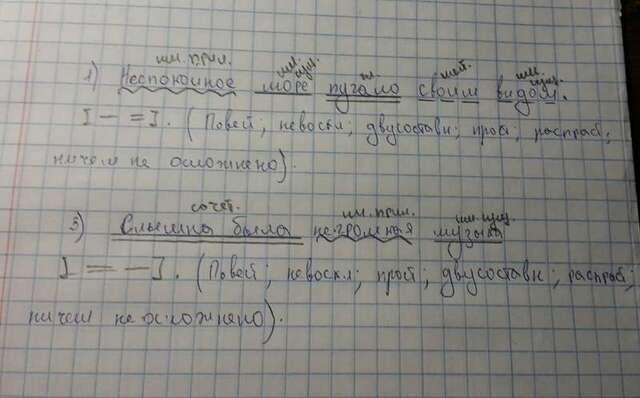 им. прил. им. сущ. гл. мест. им. сущ.
1) Неспокойное море пугало своим видом.
[ — = ]. (Повест; невоскл; двусоставн; прост; распрост;
ничем не осложнено).
сочет. им. прил. им. сущ.
3) Слышна была негромкая музыка
[ = — ]. (Повест; невоскл; прост; двусоставн; распрост;
ничем не осложнено).